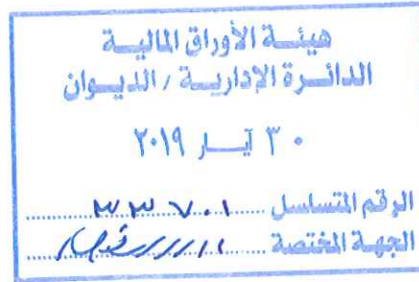 هيئة الأوراق المالية
الدائرة الإدارية / الديوان
٣٠ آيار ٢٠١٩
الرقم المتسلسل ٣٣٧٠١
الجهة المختصة